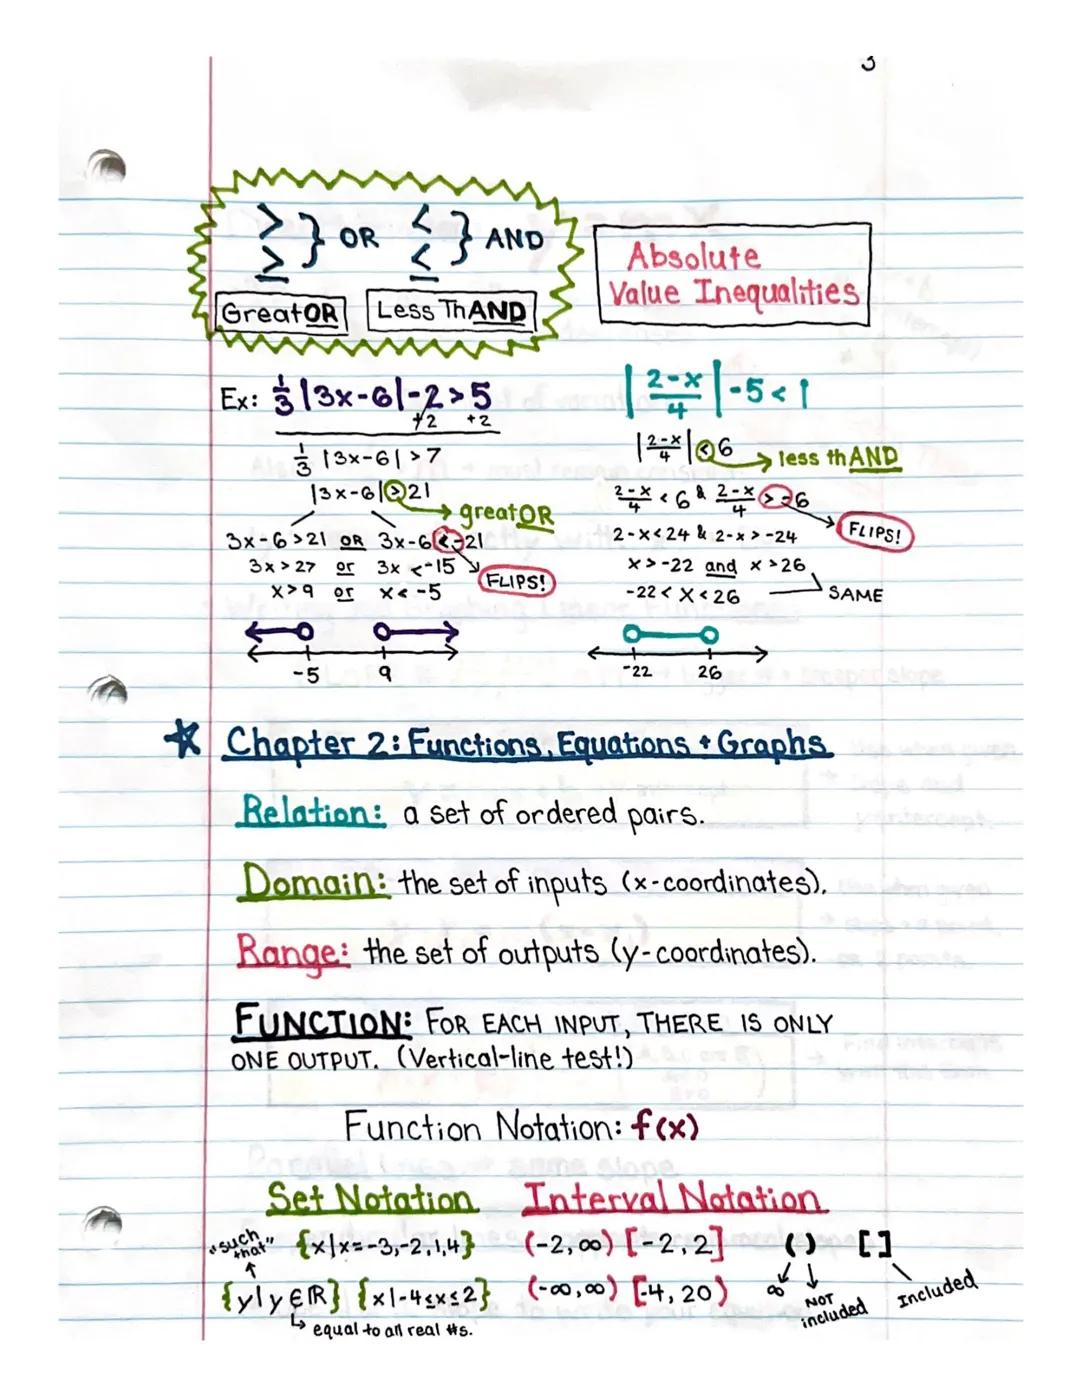 3
> ≥ } OR < ≤ } AND
GreatOR Less ThAND
Absolute
Value Inequalities
Ex: 1/3 |3x-6|-2>5
+2 +2
1/3 |3x-6|>7
|3x-6|>21
greatOR
3x-6>21 OR 3x-6<-21
3x>27 or 3x<-15
FLIPS!
x>9 or x<-5
-5 9
|2-x/4|-5<1
|2-x/4|<6
less thAND
2-x/4 <6 & 2-x/4 >-6
FLIPS!
2-x<24 & 2-x>-24
x>-22 and x>26
-22<x<26 SAME
-22 26
Chapter 2: Functions, Equations + Graphs
Relation: a set of ordered pairs.
Domain: the set of inputs (x-coordinates).
Range: the set of outputs (y-coordinates).
FUNCTION: FOR EACH INPUT, THERE IS ONLY
ONE OUTPUT. (Vertical-line test!)
Function Notation: f(x)
Set Notation Interval Notation
"such that" {x|x=-3,-2,1,4} (-2,∞) [-2,2] () []
{y|y∈ℝ} {x|-4≤x≤2} (-∞,∞) [-4,20) ∞ NOT included Included
equal to all real #s.